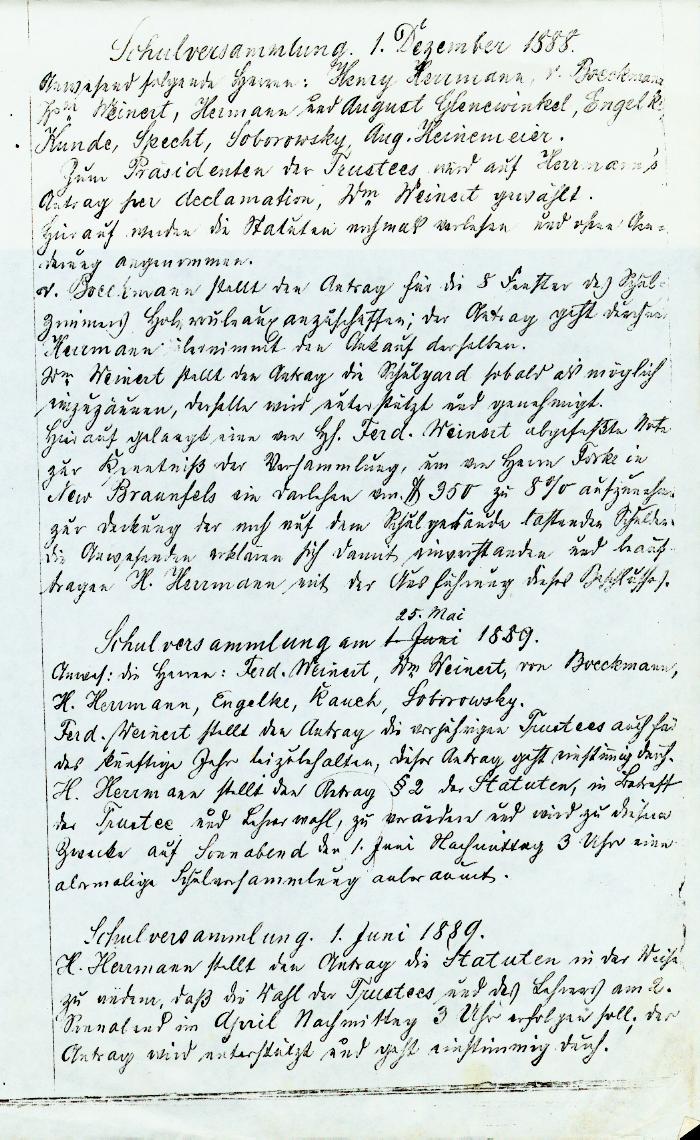 Schulversammlung. 1. Dezember 1888.
Anwesend folgende Herren: Henry Herrmann, v. Boeckmann
Weinert, Hermann und August Glenewinkel, Engelke,
Kunde, Specht, Soborowsky, Aug. Heinemeier.
Zum Präsidenten der Trustees wird auf Herrmann's
Antrag per Acclamation, Wm Weinert gewählt.
Hierauf werden die Statuten nochmals verlesen und ohne Aen-
derung angenommen.
v. Boeckmann stellt den Antrag für die 8 Fenster des Schul-
zimmers Holzrouleaux anzuschaffen; der Antrag geht durch
Herrmann übernimmt den Ankauf derselben.
Wm Weinert stellt den Antrag die Schulyard sobald als möglich
einzuzäunen, derselbe wird unterstützt und genehmigt.
Hierauf gelangt eine von Hf. Ferd. Weinert abgefaßte Note
zur Kenntniß der Versammlung, um von Herrn Forke in
New Braunfels ein Darlehen von $ 350 zu 8% aufzunehm
zur Deckung der noch auf dem Schulgebäude lastenden Schulden
die Anwesenden erklären sich damit einverstanden und beauf-
tragen H. Herrmann mit der Ausführung dieses Beschlusses.
25. Mai
Schulversammlung am 1. Juni 1889.
Anwes: die Herren: Ferd. Weinert, Wm Weinert, von Boeckmann,
H. Herrmann, Engelke, Rauch, Soborowsky.
Ferd. Weinert stellt den Antrag die vorjährigen Trustees auch für
das künftige Jahr beizubehalten, dieser Antrag geht einstimmig durch.
H. Herrmann stellt den Antrag § 2 der Statuten, in Betreff
der Trustee und Lehrerwahl, zu verändern und wird zu diesem
Zwecke auf Sonnabend den 1. Juni Nachmittag 3 Uhr eine
abermalige Schulversammlung anberaumt.
Schulversammlung. 1. Juni 1889.
H. Herrmann stellt den Antrag die Statuten in der Weise
zu ändern, daß die Wahl der Trustees und des Lehrers am 2.
Sonnabend im April Nachmittag 3 Uhr erfolgen soll; der
Antrag wird unterstützt und geht einstimmig durch.